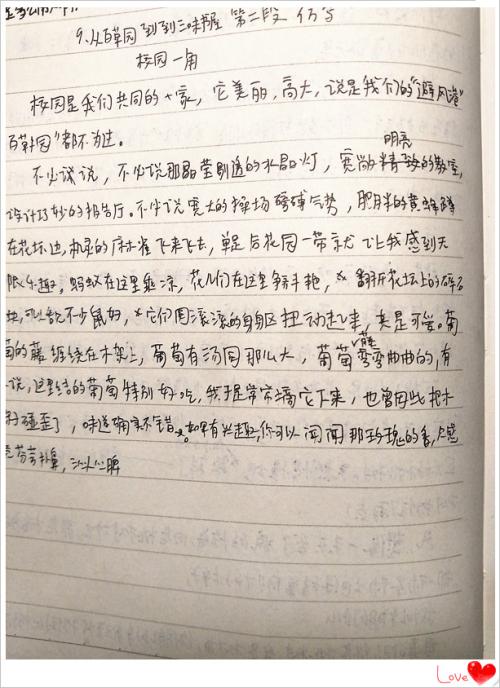 9.从百草园到到三味书屋 第二段 仿写
校园一角
校园是我们共同的大家,它美丽,高大,说是我们的“避风港”
百草园”都不为过。
不必谈说,不必说那晶莹剔透的水晶灯,宽敞精致的教室,
明亮
设计巧妙的报告厅。不必说宽大的操场磅礴气势,肥胖的黄蜂蹲
在花坛边,机灵的麻雀飞来飞去,单是后花园一带就让我感到无
限乐趣,蚂蚁在这里乘凉,花儿们在这里争奇斗艳,翻开花坛上的碎石
块,可以看见不少鼠妇,它们圆滚滚的身躯扭动起来,真是可爱。葡
萄的藤缠绕在木架上,葡萄有汤圆那么大,葡萄藤弯弯曲曲的,有
说,这里结的葡萄特别好吃,我于是常常摘它下来,也曾因此把木
碰歪了,味道确实不错。如果有兴趣,你可以闻闻那玫瑰的香,只感
觉芬芳扑鼻,沁人心脾
Love